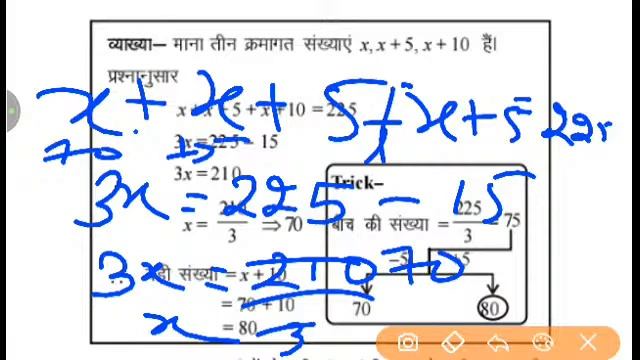 व्याख्या– माना तीन क्रमागत संख्याएं x, x + 5, x + 10 हैं।
प्रश्नानुसार
x + x + 5 + x + 10 = 225
x + x + 5 + x + 5 = 225
3x = 225 – 15
70 15
3x = 210
3x = 225 – 15
x = 210/3 ⇒ 70
Trick–
बीच की संख्या = 225/3 = 75
–5 +5
70 80
संख्या = x + 10
3x = 210 70
= 70 + 10
= 80
x 3